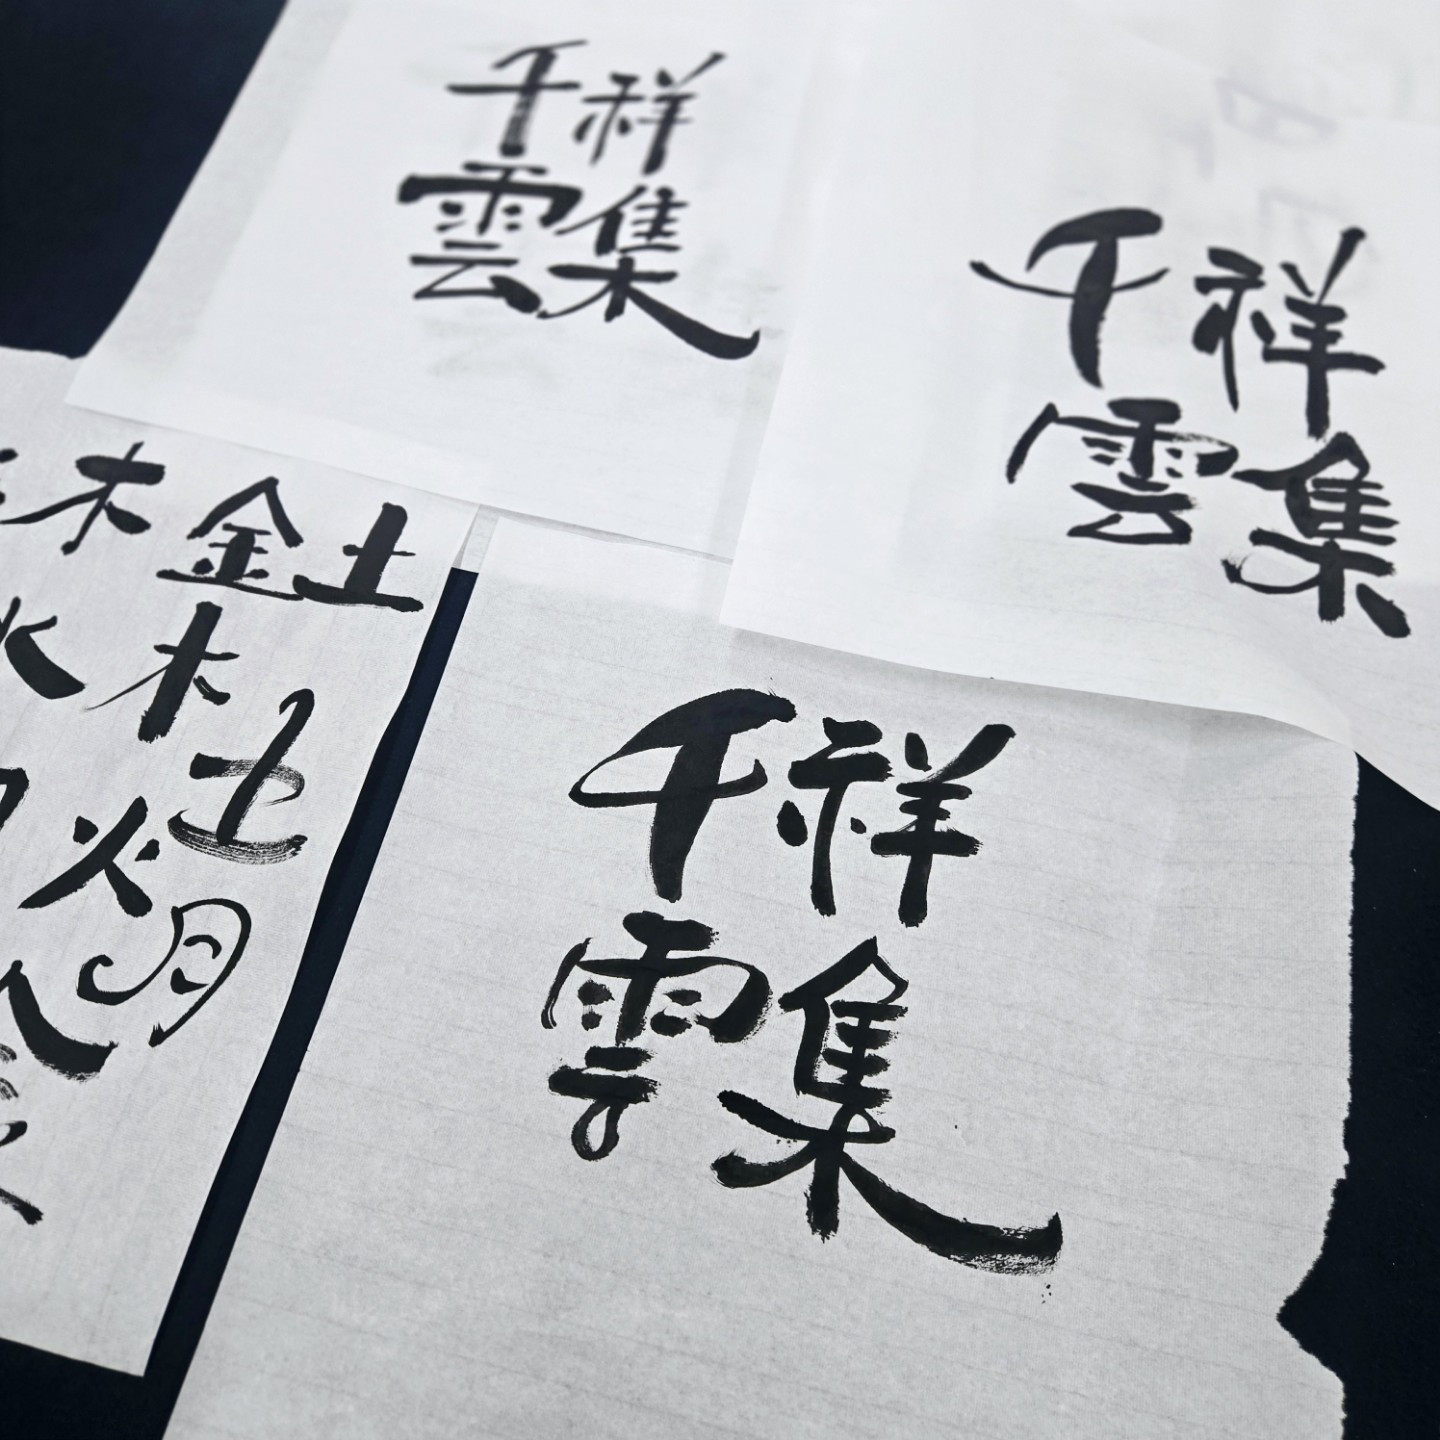 千祥
雲集
千祥
雲集
木金土
木土
火月
千祥
雲集